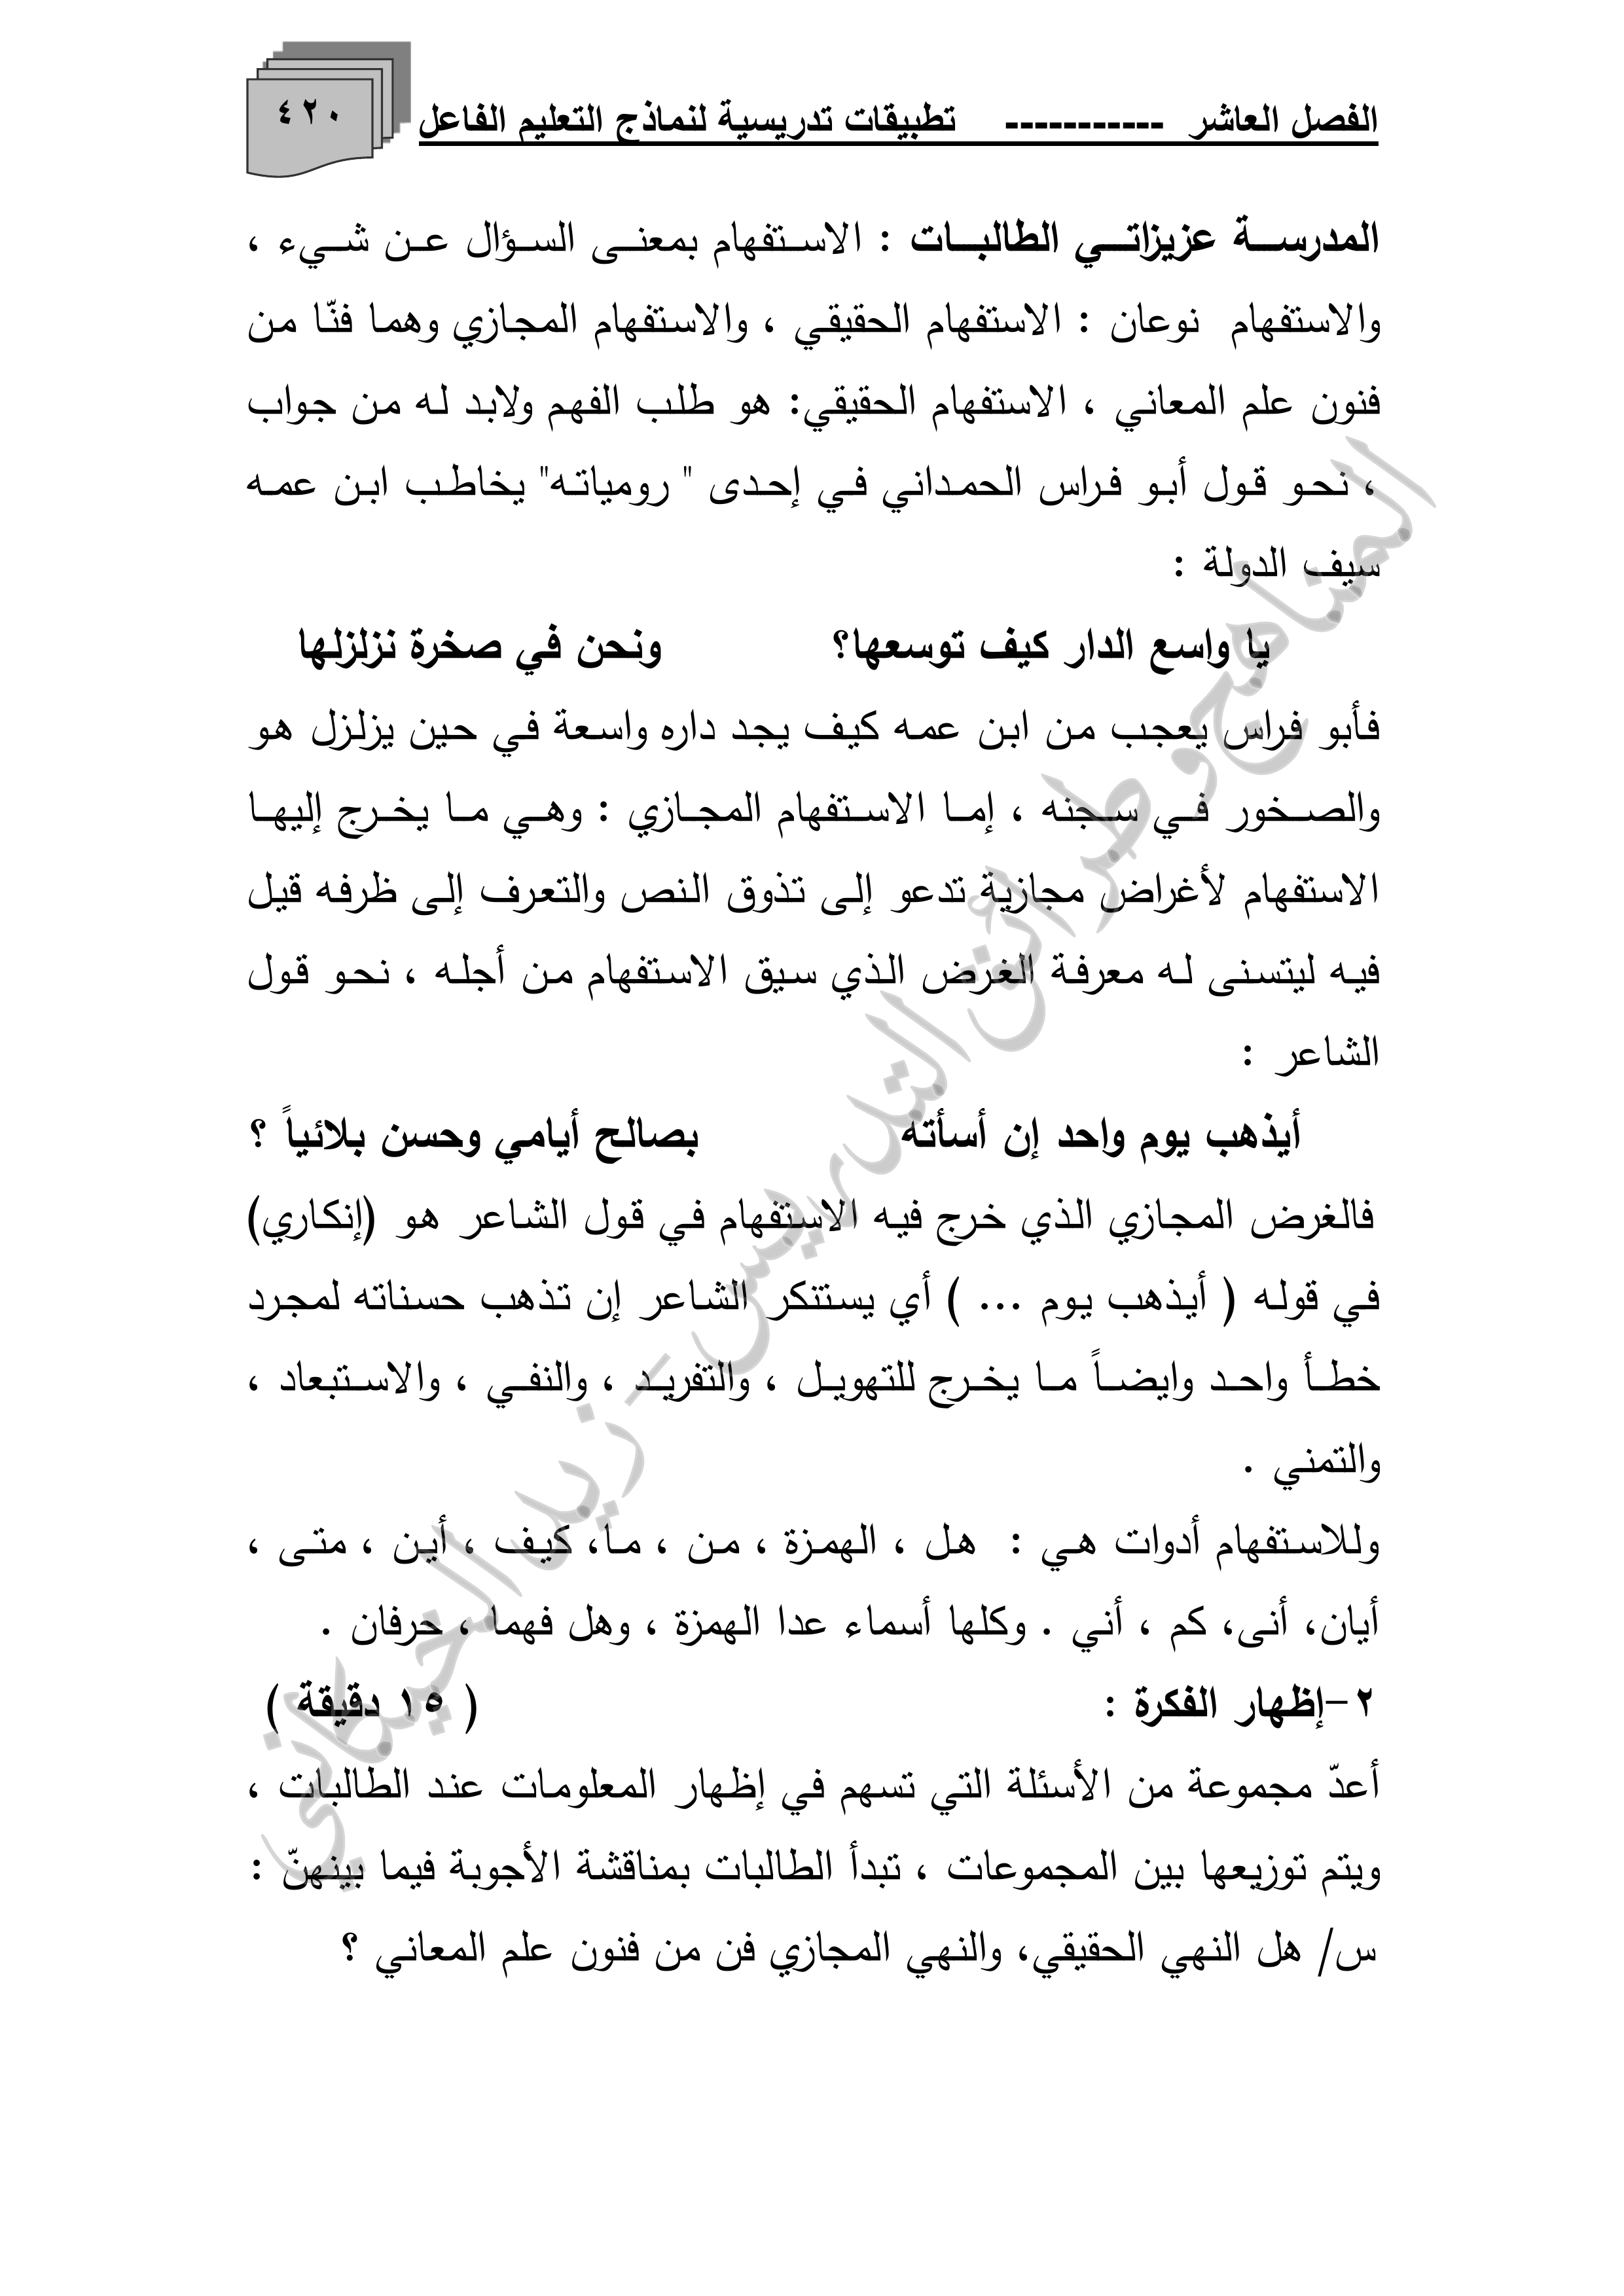 الفصل العاشر ----------- تطبيقات تدريسية لنماذج التعليم الفاعل
٤٢٠
المدرسة عزيزاتي الطالبات : الاستفهام بمعنى السؤال عن شيء ،
والاستفهام نوعان : الاستفهام الحقيقي ، والاستفهام المجازي وهما فنّا من
فنون علم المعاني ، الاستفهام الحقيقي: هو طلب الفهم ولابد له من جواب
، نحو قول أبو فراس الحمداني في إحدى " رومياته" يخاطب ابن عمه
سيف الدولة :
يا واسع الدار كيف توسعها؟ ونحن في صخرة نزلزلها
فأبو فراس يعجب من ابن عمه كيف يجد داره واسعة في حين يزلزل هو
والصخور في سجنه ، إما الاستفهام المجازي : وهي ما يخرج إليها
الاستفهام لأغراض مجازية تدعو إلى تذوق النص والتعرف إلى ظرفه قيل
فيه ليتسنى له معرفة الغرض الذي سيق الاستفهام من أجله ، نحو قول
الشاعر :
أيذهب يوم واحد إن أسأته بصالح أيامي وحسن بلائياً ؟
فالغرض المجازي الذي خرج فيه الاستفهام في قول الشاعر هو (إنكاري)
في قوله ( أيذهب يوم ... ) أي يستنكر الشاعر إن تذهب حسناته لمجرد
خطأ واحد وايضاً ما يخرج للتهويل ، والتفريد ، والنفي ، والاستبعاد ،
والتمني .
وللاستفهام أدوات هي : هل ، الهمزة ، من ، ما، كيف ، أين ، متى ،
أيان، أنى، كم ، أني . وكلها أسماء عدا الهمزة ، وهل فهما ، حرفان .
٢-إظهار الفكرة : ( ١٥ دقيقة )
أعدّ مجموعة من الأسئلة التي تسهم في إظهار المعلومات عند الطالبات ،
ويتم توزيعها بين المجموعات ، تبدأ الطالبات بمناقشة الأجوبة فيما بينهنّ :
س/ هل النهي الحقيقي، والنهي المجازي فن من فنون علم المعاني ؟
المناهج وطرائق التدريس - زيد الخيكاني